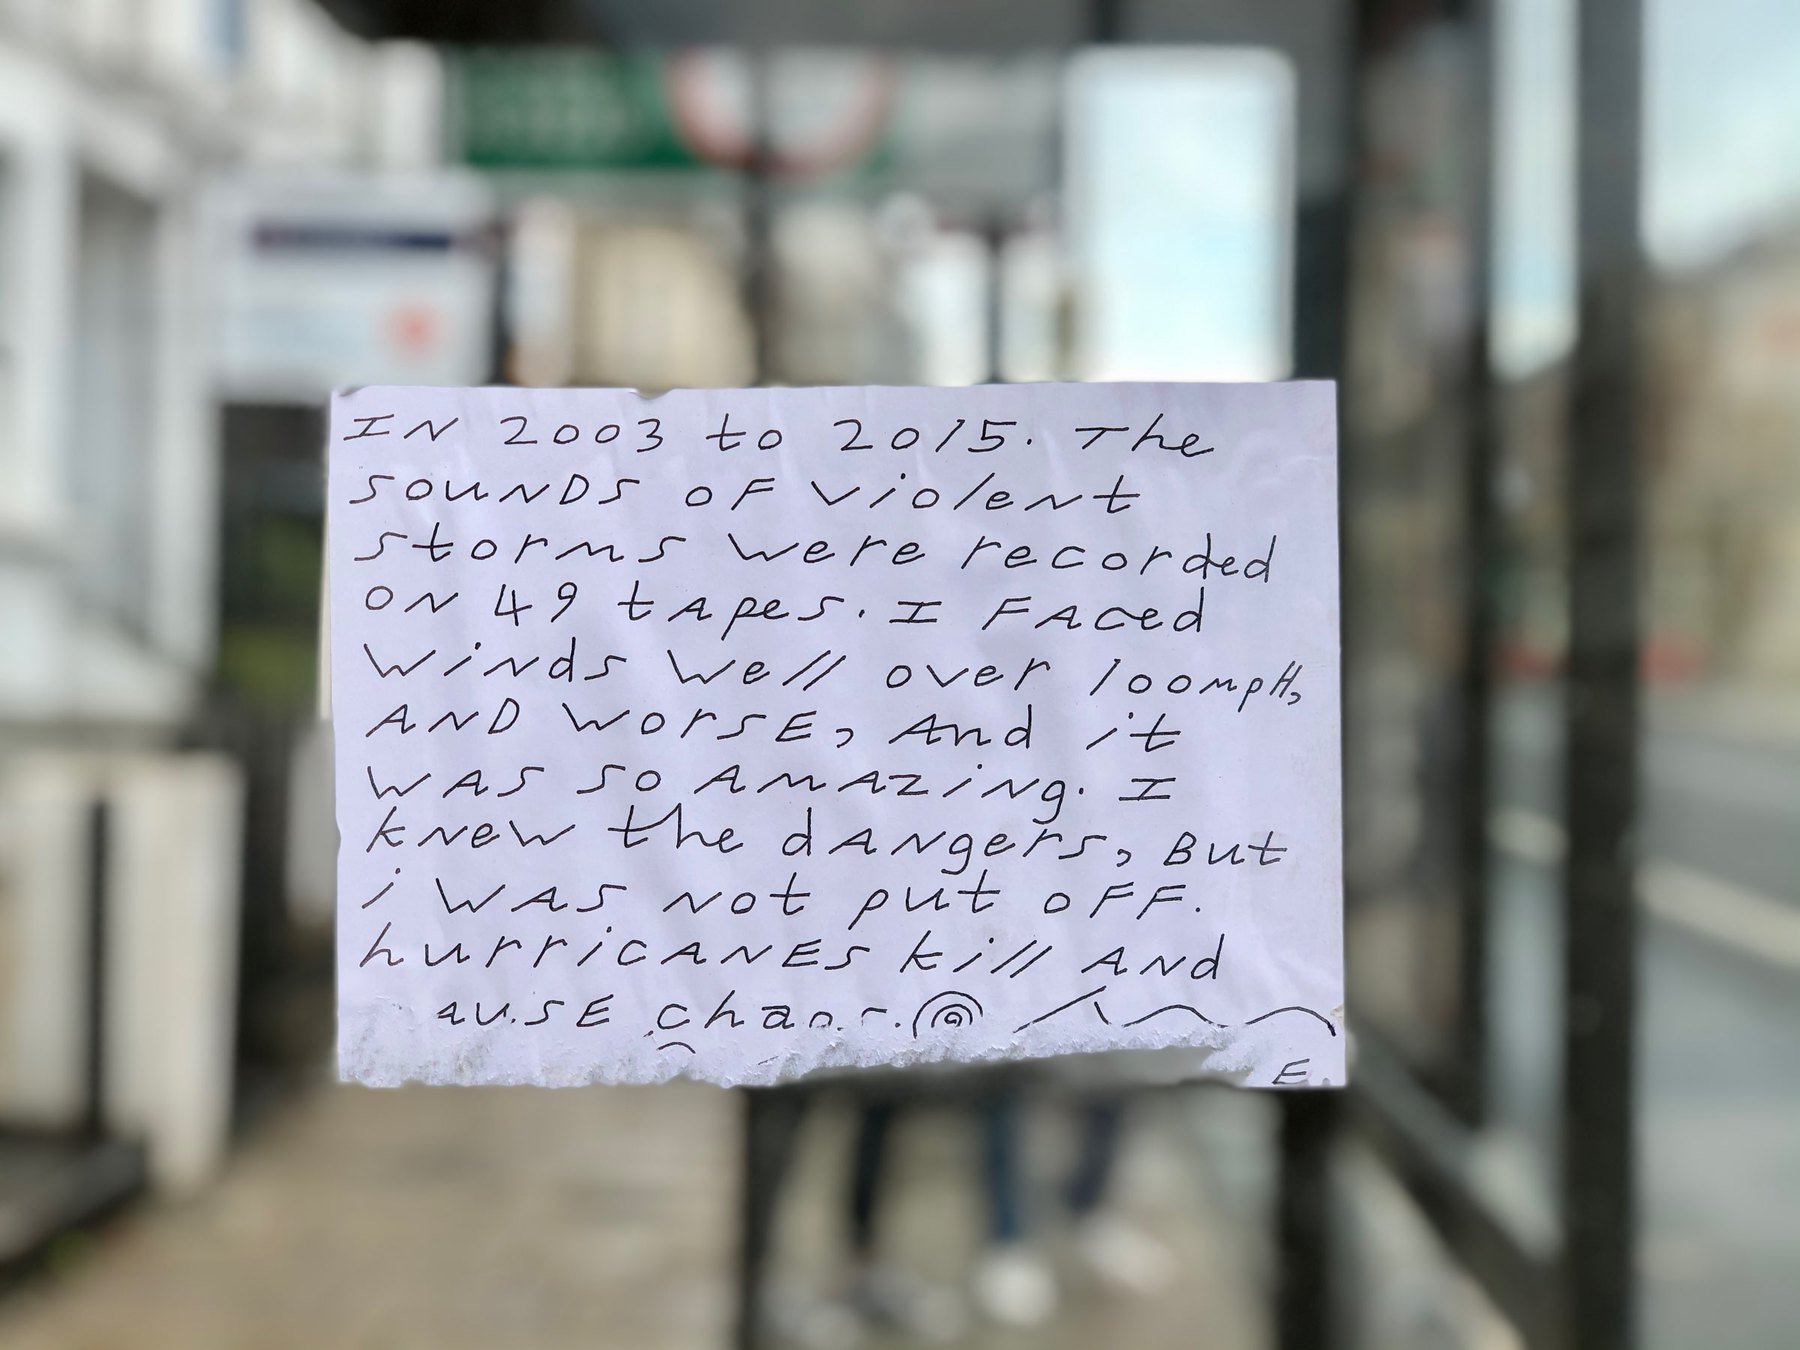 IN 2003 to 2015. The
SOUNDS OF violent
storms were recorded
ON 49 tApes. I FAced
WiNds Well over 100mpH,
AND WorsE, And it
WAS SO AMAZiNg. I
kNew the dANgers, But
i WAS Not put OFF.
hurriCANES kill ANd
AUSE chaos.
E.